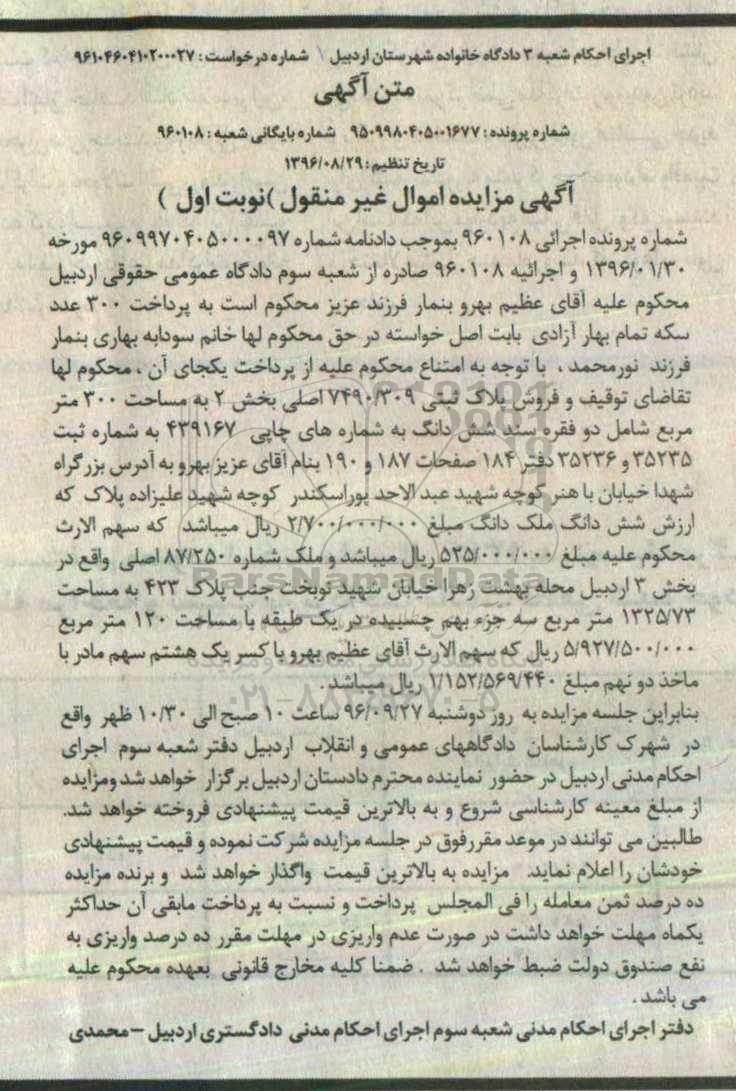 اجرای احکام شعبه ۳ دادگاه خانواده شهرستان اردبیل / شماره درخواست : ۹۶۱۰۴۶۰۴۱۰۲۰۰۰۲۷
متن آگهی
شماره پرونده : ۹۵۰۹۹۸۰۴۰۵۰۰۱۶۷۷ شماره بایگانی شعبه : ۹۶۰۱۰۸
تاریخ تنظیم : ۱۳۹۶/۰۸/۲۹
آگهی مزایده اموال غیر منقول )نوبت اول )
شماره پرونده اجرائی ۹۶۰۱۰۸ بموجب دادنامه شماره ۹۶۰۹۹۷۰۴۰۵۰۰۰۰۹۷ مورخه
۱۳۹۶/۰۱/۳۰ و اجرائیه ۹۶۰۱۰۸ صادره از شعبه سوم دادگاه عمومی حقوقی اردبیل
محکوم علیه آقای عظیم بهرو بنمار فرزند عزیز محکوم است به پرداخت ۳۰۰ عدد
سکه تمام بهار آزادی بابت اصل خواسته در حق محکوم لها خانم سودابه بهاری بنمار
فرزند نورمحمد ، با توجه به امتناع محکوم علیه از پرداخت یکجای آن ، محکوم لها
تقاضای توقیف و فروش پلاک ثبتی ۷۴۹۰/۳۰۹ اصلی بخش ۲ به مساحت ۳۰۰ متر
مربع شامل دو فقره سند شش دانگ به شماره های چاپی ۴۳۹۱۶۷ به شماره ثبت
۳۵۲۳۵ و ۳۵۲۳۶ دفتر ۱۸۴ صفحات ۱۸۷ و ۱۹۰ بنام آقای عزیز بهرو به آدرس بزرگراه
شهدا خیابان با هنر کوچه شهید عبد الاحد پوراسکندر کوچه شهید علیزاده پلاک که
ارزش شش دانگ ملک دانگ مبلغ ۲/۷۰۰/۰۰۰/۰۰۰ ریال میباشد که سهم الارث
محکوم علیه مبلغ ۵۲۵/۰۰۰/۰۰۰ ریال میباشد و ملک شماره ۸۷/۲۵۰ اصلی واقع در
بخش ۳ اردبیل محله بهشت زهرا خیابان شهید نوبخت جنب پلاک ۴۲۳ به مساحت
۱۳۲۵/۷۳ متر مربع سه جزء بهم چسبیده در یک طبقه با مساحت ۱۲۰ متر مربع
۵/۹۲۷/۵۰۰/۰۰۰ ریال که سهم الارث آقای عظیم بهرو با کسر یک هشتم سهم مادر با
ماخذ دو نهم مبلغ ۱/۱۵۲/۵۶۹/۴۴۰ ریال میباشد.
بنابراین جلسه مزایده به روز دوشنبه ۹۶/۰۹/۲۷ ساعت ۱۰ صبح الی ۱۰/۳۰ ظهر واقع
در شهرک کارشناسان دادگاههای عمومی و انقلاب اردبیل دفتر شعبه سوم اجرای
احکام مدنی اردبیل در حضور نماینده محترم دادستان اردبیل برگزار خواهد شد ومزایده
از مبلغ معینه کارشناسی شروع و به بالاترین قیمت پیشنهادی فروخته خواهد شد.
طالبین می توانند در موعد مقررفوق در جلسه مزایده شرکت نموده و قیمت پیشنهادی
خودشان را اعلام نماید. مزایده به بالاترین قیمت واگذار خواهد شد و برنده مزایده
ده درصد ثمن معامله را فی المجلس پرداخت و نسبت به پرداخت مابقی آن حداکثر
یکماه مهلت خواهد داشت در صورت عدم واریزی در مهلت مقرر ده درصد واریزی به
نفع صندوق دولت ضبط خواهد شد . ضمنا کلیه مخارج قانونی بعهده محکوم علیه
می باشد .
دفتر اجرای احکام مدنی شعبه سوم اجرای احکام مدنی دادگستری اردبیل –محمدی
ParsNamadData